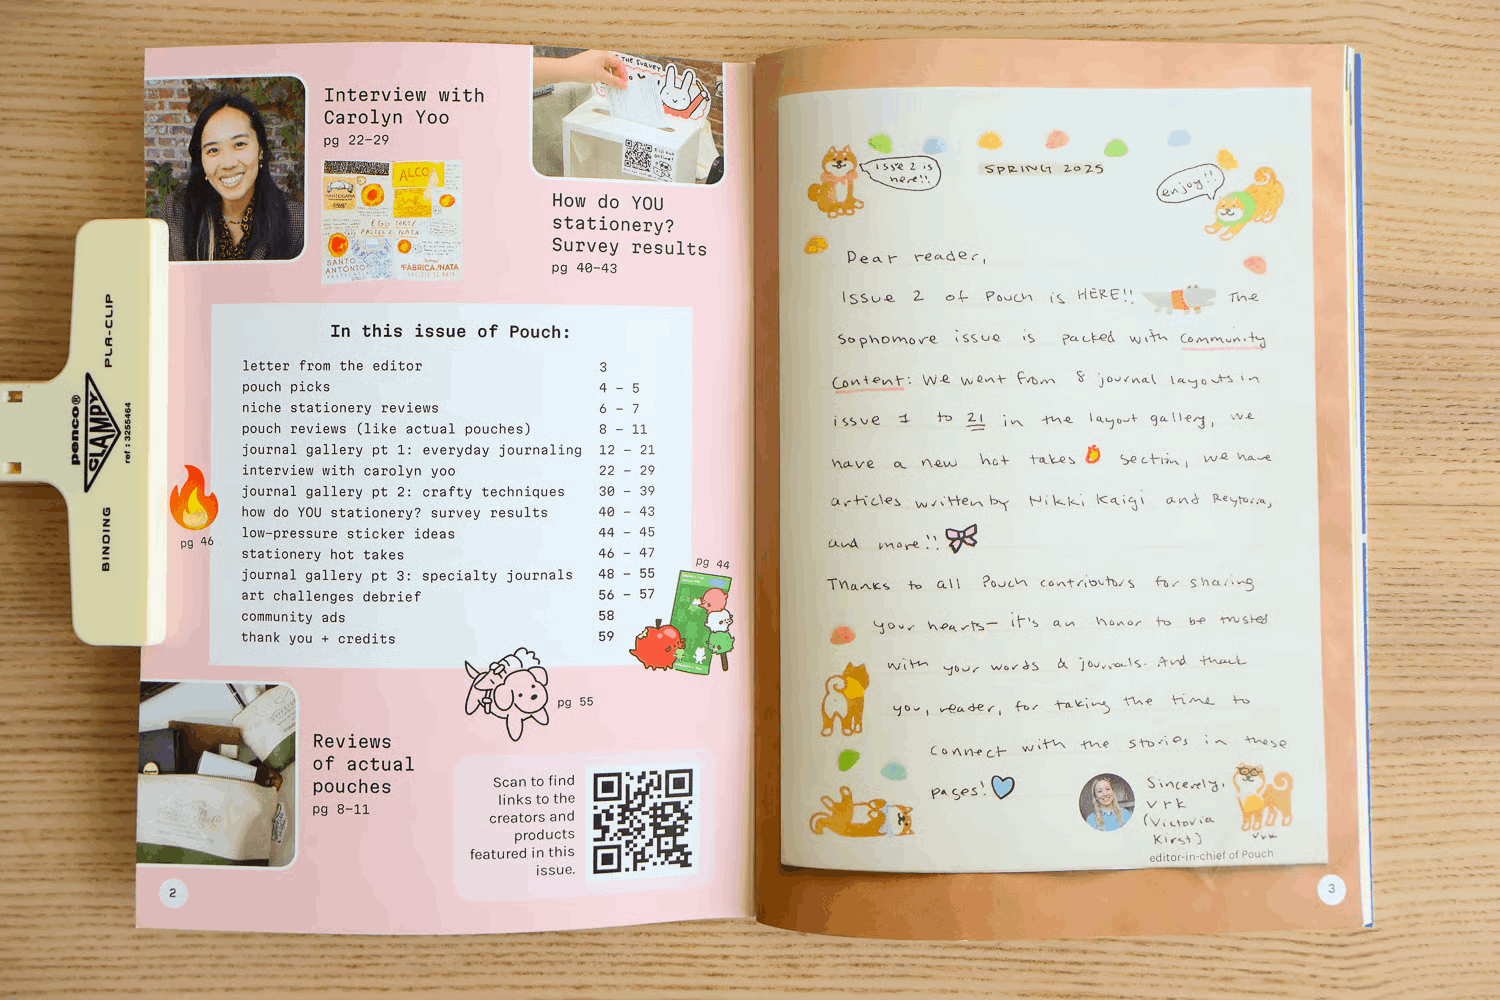 Interview with
Carolyn Yoo
pg 22-29
ALCO
EGG TART/
PASTEL de NATA
SANTO
ANTÓNIO
FÁBRICA da NATA
THE SURVEY
How do YOU
stationery?
Survey results
pg 40-43
In this issue of Pouch:
letter from the editor 3
pouch picks 4 - 5
niche stationery reviews 6 - 7
pouch reviews (like actual pouches) 8 - 11
journal gallery pt 1: everyday journaling 12 - 21
interview with carolyn yoo 22 - 29
journal gallery pt 2: crafty techniques 30 - 39
how do YOU stationery? survey results 40 - 43
low-pressure sticker ideas 44 - 45
stationery hot takes 46 - 47
journal gallery pt 3: specialty journals 48 - 55
art challenges debrief 56 - 57
community ads 58
thank you + credits 59
pg 46
pg 44
pg 55
Reviews
of actual
pouches
pg 8-11
Scan to find
links to the
creators and
products
featured in this
issue.
2
PLA-CLIP
penco®
CLAMPY
ref : 3255464
BINDING
issue 2 is
here!!
SPRING 2025
enjoy!!
Dear reader,
Issue 2 of Pouch is HERE!! The
sophomore issue is packed with community
content: We went from 8 journal layouts in
issue 1 to 21 in the layout gallery, we
have a new hot takes section, we have
articles written by Nikki, Kaigi and Reytoria,
and more!!
Thanks to all Pouch contributors for sharing
your hearts— it's an honor to be trusted
with your words & journals. And thank
you, reader, for taking the time to
connect with the stories in these
pages!
Sincerely,
vrk
(Victoria
Kirst)
vrk
editor-in-chief of Pouch
3